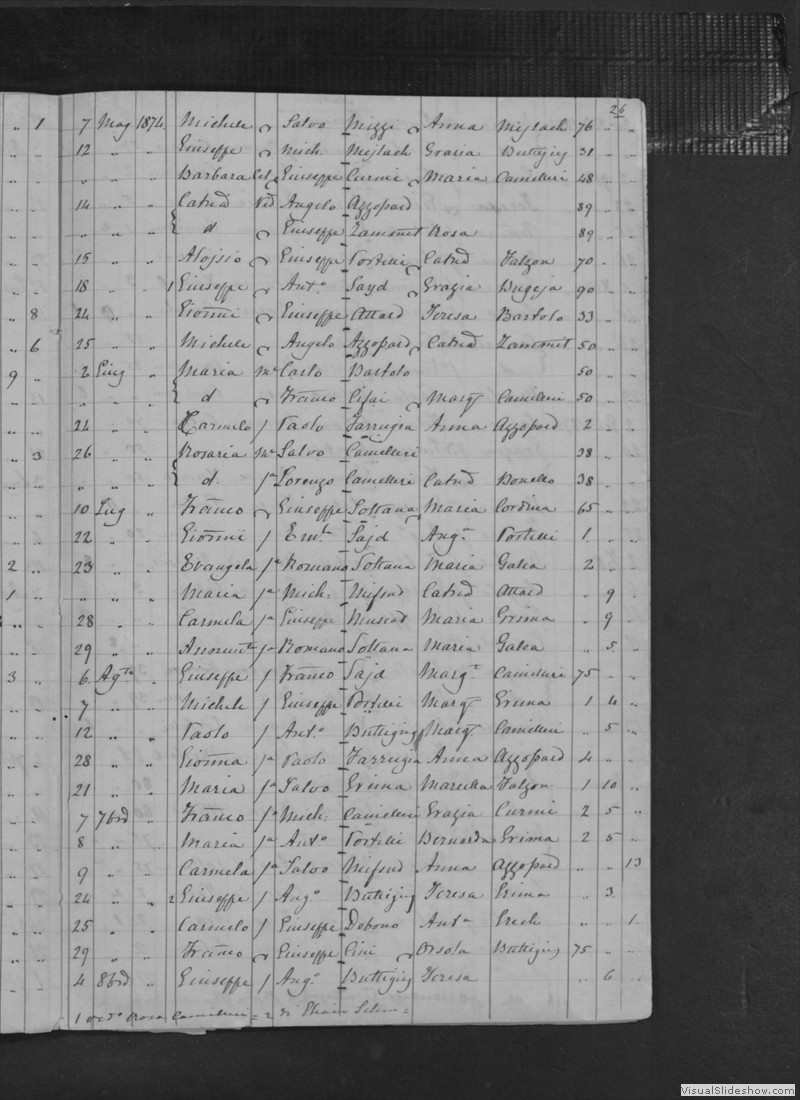 26
„ 1 7 Mag 1874 Michele Salvo Mizzi Anna Mejlach 76 „ „
„ „ 12 „ „ Giuseppe Mich. Mejlach Grazia Buttigieg 31 „ „
„ „ „ „ „ Barbara Cel. Giuseppe Curmi Maria Camilleri 48 „ „
„ „ 14 „ „ Catnã Ved Angelo Azzopard 89 „ „
„ „ „ „ „ d Giuseppe Zammit Rosa 89 „ „
„ „ 15 „ „ Alojsio Giuseppe Portelli Catnã Falzon 70 „ „
„ „ 18 „ „ 1 Giuseppe Antº Sayd Grazia Bugeja 90 „ „
„ 8 24 „ „ Gionni Giuseppe Attard Teresa Bartolo 33 „ „
„ 6 25 „ „ Michele Angelo Azzopard Catnã Zammit 50 „ „
9 „ 2 Giug „ Maria Mª Carlo Bartolo 50 „ „
„ „ „ „ „ d Franco Margª Camilleri 50 „ „
„ „ 24 „ „ Carmelo f Paolo Farrugia Anna Azzopard 2 „ „
„ 3 26 „ „ Rosaria Mª Salvo Camilleri 38 „ „
„ „ „ „ „ d. fª Lorenzo Camilleri Catnã Bonello 38 „ „
„ „ 10 Lug „ Franco Giuseppe Soltana Maria Cordina 65 „ „
„ „ 22 „ „ Gionni f Emlº Sajd Angª Portelli 1 „ „
2 „ 23 „ „ Evangela fª Romano Soltana Maria Galea 2 „ „
1 „ „ „ „ Maria fª Mich: Mifsud Catnã Attard „ 9 „
„ 28 „ „ Carmela fª Giuseppe Muscat Maria Grima „ 9 „
„ „ 29 „ „ Annunta fª Romano Soltana Maria Galea „ 5 „
3 „ 6 Agto „ Giuseppe f Franco Sajd Margª Camilleri 75 „ „
„ „ 7 „ „ Michele f Giuseppe Portelli Margª Grima 1 4 „
„ „ 12 „ „ Paolo f Antº Buttigieg Margª Camilleri „ 5 „
„ „ 28 „ „ Gionna fª Paolo Farrugia Anna Azzopard 4 „ „
„ „ 21 „ „ Maria fª Salvo Grima Falzon 1 10 „
„ „ 7 7brẽ „ Franco fº Mich: Camilleri Grazia Curmi 2 5 „
„ „ 8 „ „ Maria fª Antº Portelli Bernarda Grima 2 5 „
„ „ 9 „ „ Carmela fª Salvo Mifsud Anna Azzopard „ „ 13
„ „ 24 „ „ 2 Giuseppe f Angº Buttigieg Teresa Grima „ 3 „
„ „ 25 „ „ Carmelo f Giuseppe Debono Antª Grech „ „ 1
„ „ 29 „ „ Franco Giuseppe Cini Orsola Buttigieg 75 „ „
„ „ 4 8brẽ „ Giuseppe f Angº Buttigieg Teresa „ 6 „
1 Rosa Camilleri = 2 di
VisualSlideshow.com